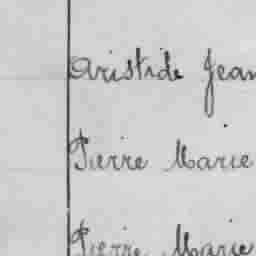 Aristide Jean
Pierre Marie
Pierre Marie